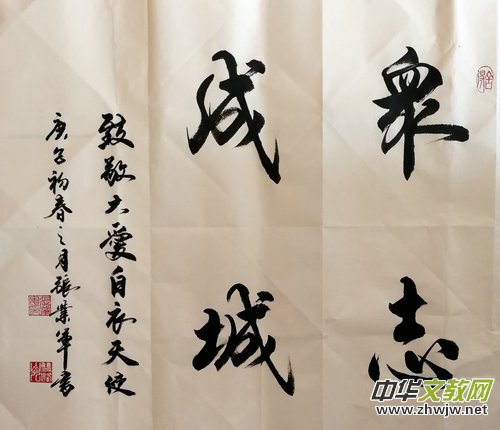 眾志
成城
致敬大愛白衣天使
庚子初春之月張業軍書
中华文教网
www.zhwjw.net